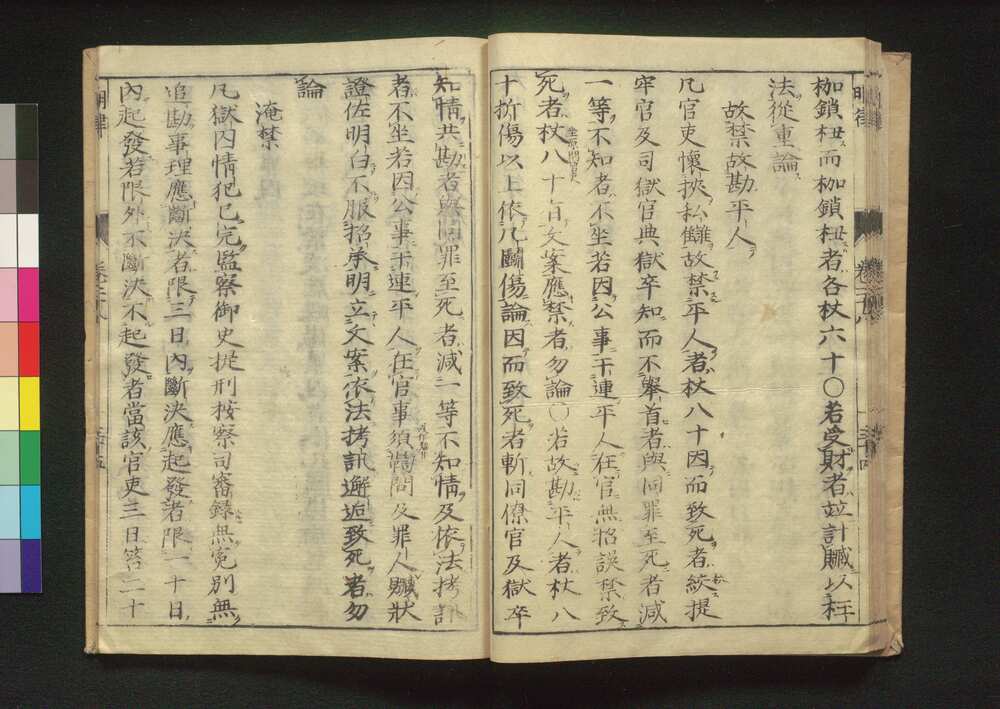 枷鎖杻而枷鎖杻者各杖六十〇若受財者並計贓以枉
法從重論
故禁故勘平人
凡官吏懷挾私讎故禁平人者杖八十因而致死者絞提
牢官及司獄官典獄卒知而不舉首者與同罪至死者減
一等不知者不坐若因公事干連平人在官無招誤禁致
死者杖八十有文案應禁者勿論〇若故勘平人者杖八
十折傷以上依凡鬬傷論因而致死者斬同僚官及獄卒
知情共勘者與同罪至死者減一等不知情及依法拷訊
者不坐若因公事干連平人在官事須鞫問及罪人贓狀
證佐明白不服招承明立文案依法拷訊邂逅致死者勿
論
淹禁
凡獄囚情犯已完監察御史提刑按察司審錄無冤別無
追勘事理應斷決者限三日內斷決應起發者限一十日
內起發若限外不斷決不起發者當該官吏三日笞二十
明律
卷二十八